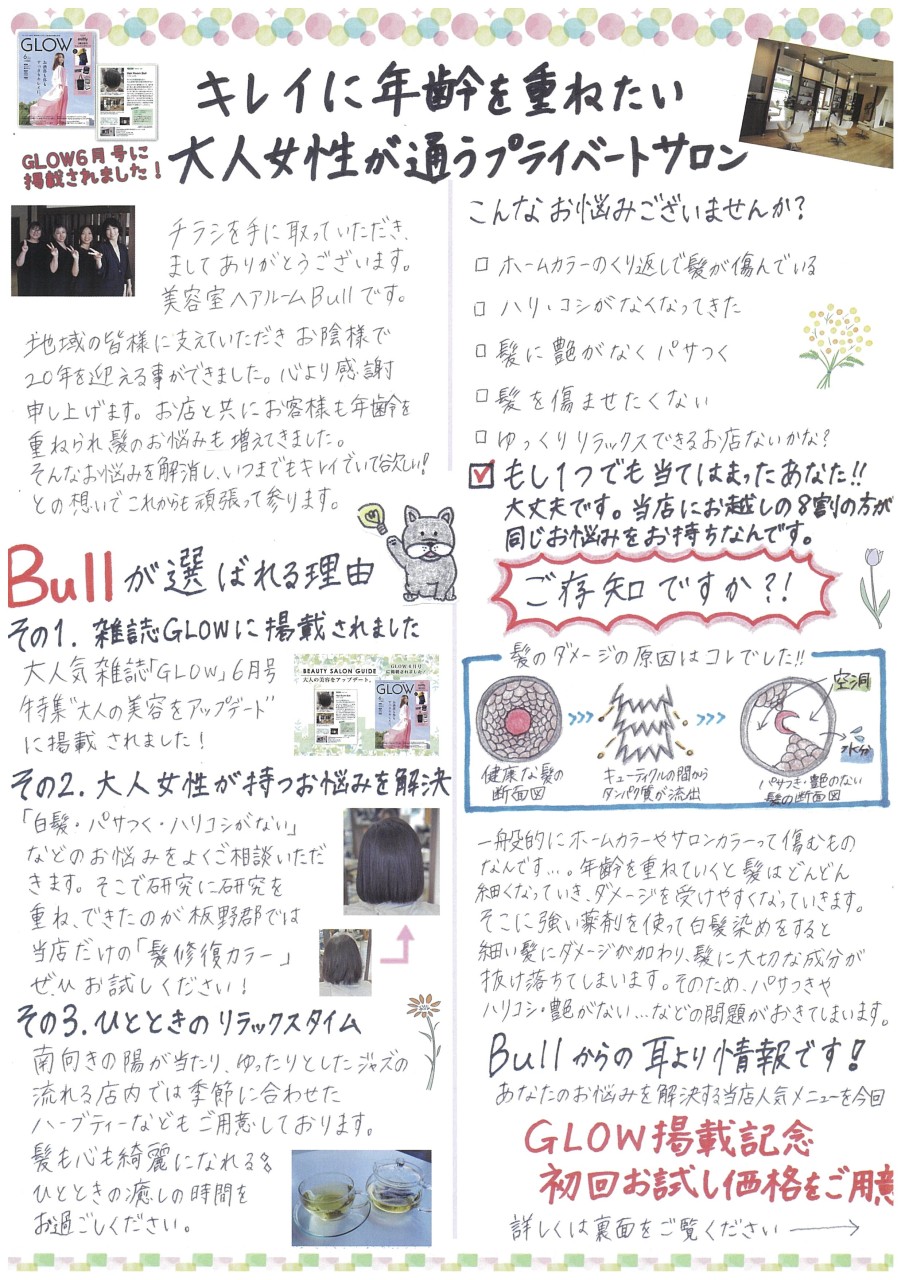 GLOW
GLOW6月号に
掲載されました!
キレイに年齢を重ねたい
大人女性が通うプライベートサロン
チラシを手に取っていただき、
ましてありがとうございます。
美容室ヘアルームBullです。
地域の皆様に支えていただきお陰様で
20年を迎える事ができました。心より感謝
申し上げます。お店と共にお客様も年齢を
重ねられ髪のお悩みも増えてきました。
そんなお悩みを解消し、いつまでもキレイでいて欲しい!
との想いでこれからも頑張って参ります。
Bullが選ばれる理由
その1.雑誌GLOWに掲載されました
大人気雑誌「GLOW」6月号
特集"大人の美容をアップデート"
に掲載されました!
BEAUTY SALON GUIDE
大人の美容をアップデート。
GLOW 6月号
に掲載されました!
GLOW
その2.大人女性が持つお悩みを解決
「白髪・パサつく・ハリコシがない」
などのお悩みをよくご相談いただ
きます。そこで研究に研究を
重ね、できたのが板野郡では
当店だけの「髪修復カラー」
ぜひお試しください!
その3.ひとときのリラックスタイム
南向きの陽が当たり、ゆったりとしたジャズの
流れる店内では季節に合わせた
ハーブティーなどもご用意しております。
髪も心も綺麗になれる
ひとときの癒しの時間を
お過ごしください。
こんなお悩みございませんか?
□ ホームカラーのくり返しで髪が傷んでいる
□ ハリ・コシがなくなってきた
□ 髪に艶がなくパサつく
□ 髪を傷ませたくない
□ ゆっくりリラックスできるお店ないかな?
☑ もし1つでも当てはまったあなた!!
大丈夫です。当店にお越しの8割の方が
同じお悩みをお持ちなんです。
ご存知ですか?!
髪のダメージの原因はコレでした!!
健康な髪の
断面図
>>>
キューティクルの間から
タンパク質が流出
>>>
空洞
水分
パサつき・艶のない
髪の断面図
一般的にホームカラーやサロンカラーって傷むもの
なんです…。年齢を重ねていくと髪はどんどん
細くなっていき、ダメージを受けやすくなっていきます。
そこに強い薬剤を使って白髪染めをすると
細い髪にダメージが加わり、髪に大切な成分が
抜け落ちてしまいます。そのため、パサつきや
ハリコシ・艶がない…などの問題がおきてしまいます。
Bullからの耳より情報です!
あなたのお悩みを解決する当店人気メニューを今回
GLOW掲載記念
初回お試し価格をご用意
詳しくは裏面をご覧ください→